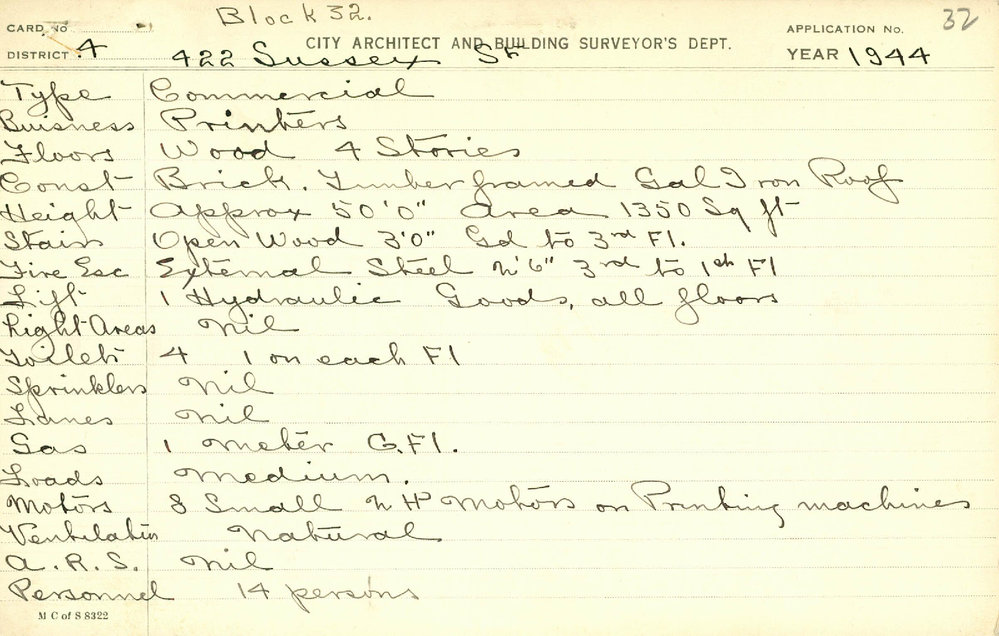 Block 32.
32
CARD No
CITY ARCHITECT AND BUILDING SURVEYOR'S DEPT.
APPLICATION No.
DISTRICT 4
422 Sussex St
YEAR 1944
Type Commercial
Buisness Printers
Floors Wood 4 Stories
Const Brick. Timber framed Gal Iron Roof
Height Approx 50'0" Area 1350 Sq ft
Stairs Open Wood 3'0" Gd to 3rd Fl.
Fire Esc External Steel 2'6" 3rd to 1st Fl
Lift 1 Hydraulic Goods, all floors
Light Areas Nil
Toilets 4 1 on each Fl
Sprinklers Nil
Lanes Nil
Gas 1 meter G.Fl.
Loads Medium.
Motors 8 Small 2 HP Motors on Printing machines
Ventilation Natural
A.R.S. Nil
Personnel 14 persons
M C of S 8322